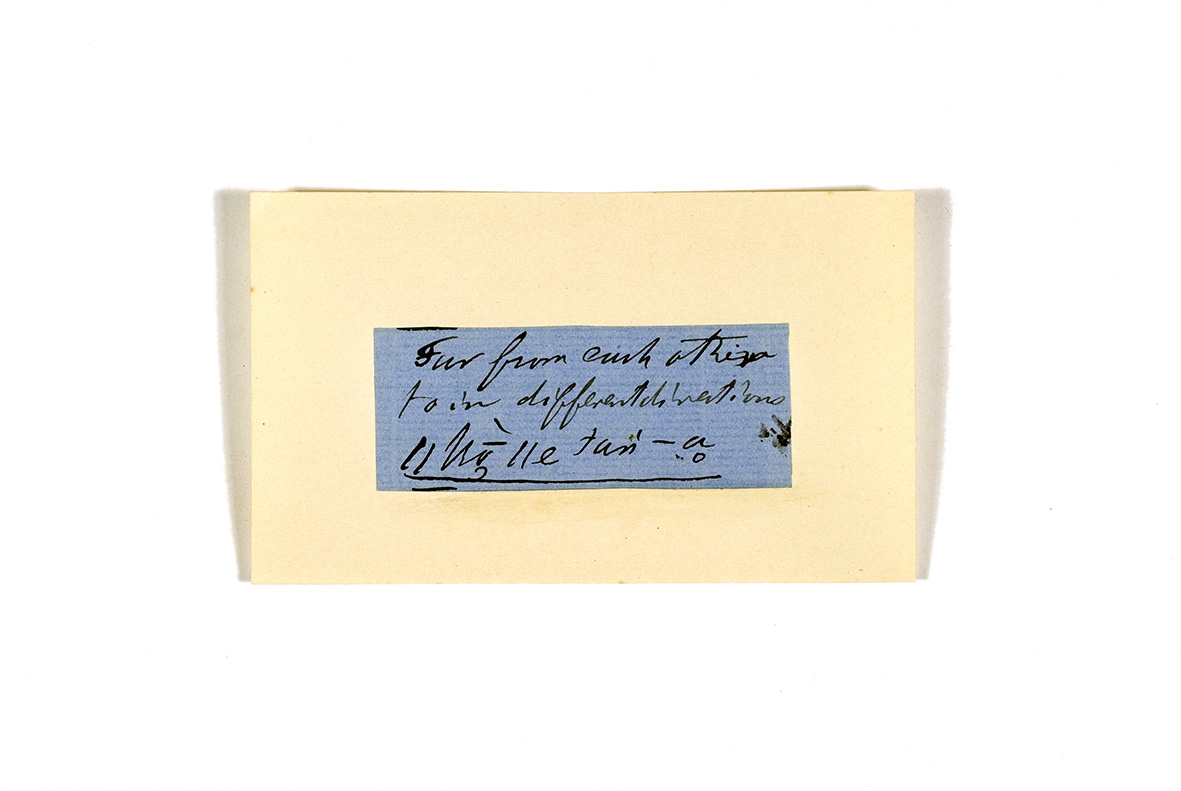 Far from each other
to in different directions
ǁe tań-a̤